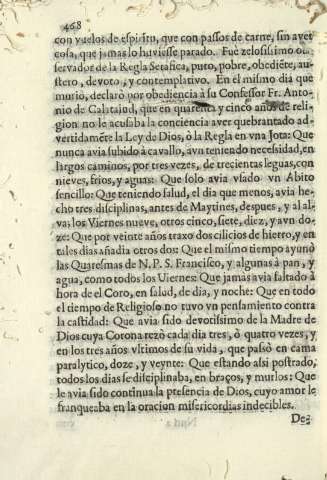 468
con vuelos de espiritu, que con passos de carne, sin aver
cosa, que jamas lo huviesse parado. Fue zelosissimo ob
servador de la Regla Serafica, puro, pobre, obediēte, au-
stero, devoto, y contemplativo. En el mismo dia que
murió, declaró por obediencia à su Confessor Fr. Anto-
nio de Calatajud, que en quarenta y cinco años de reli-
gion no le acusaba la conciencia aver quebrantado ad-
vertidamēte la Ley de Dios, ò la Regla en vna Jota: Que
nunca avia subido à cavallo, avn teniendo necessidad, en
largos caminos, por tres vezes, de trecientas leguas, con
nieves, frios, y aguas: Que solo avia vsado vn Abito
sencillo: Que teniendo salud, el dia que menos, avia he-
cho tres disciplinas, antes de Maytines, despues, y al al-
va; los Viernes nueve, otros cinco, siete, diez, y avn do-
ze: Que por veinte años traxo dos cilicios de hierro, y en
tales dias añadia otros dos: Que el mismo tiempo ayunò
las Quaresmas de N. P. S. Francisco, y algunas à pan, y
agua, como todos los Viernes: Que jamas avia faltado à
hora de el Coro, en salud, de dia, y noche: Que en todo
el tiempo de Religioso no tuvo vn pensamiento contra
la castidad: Que avia sido devotissimo de la Madre de
Dios cuya Corona rezò cada dia tres, ò quatro vezes, y
en los tres años vltimos de su vida, que passò en cama
paralytico, doze, y veynte: Que estando assi postrado,
todos los dias se disciplinaba, en braços, y muslos: Que
le avia sido continua la presencia de Dios, cuyo amor le
franqueaba en la oracion misericordias indecibles.
De-